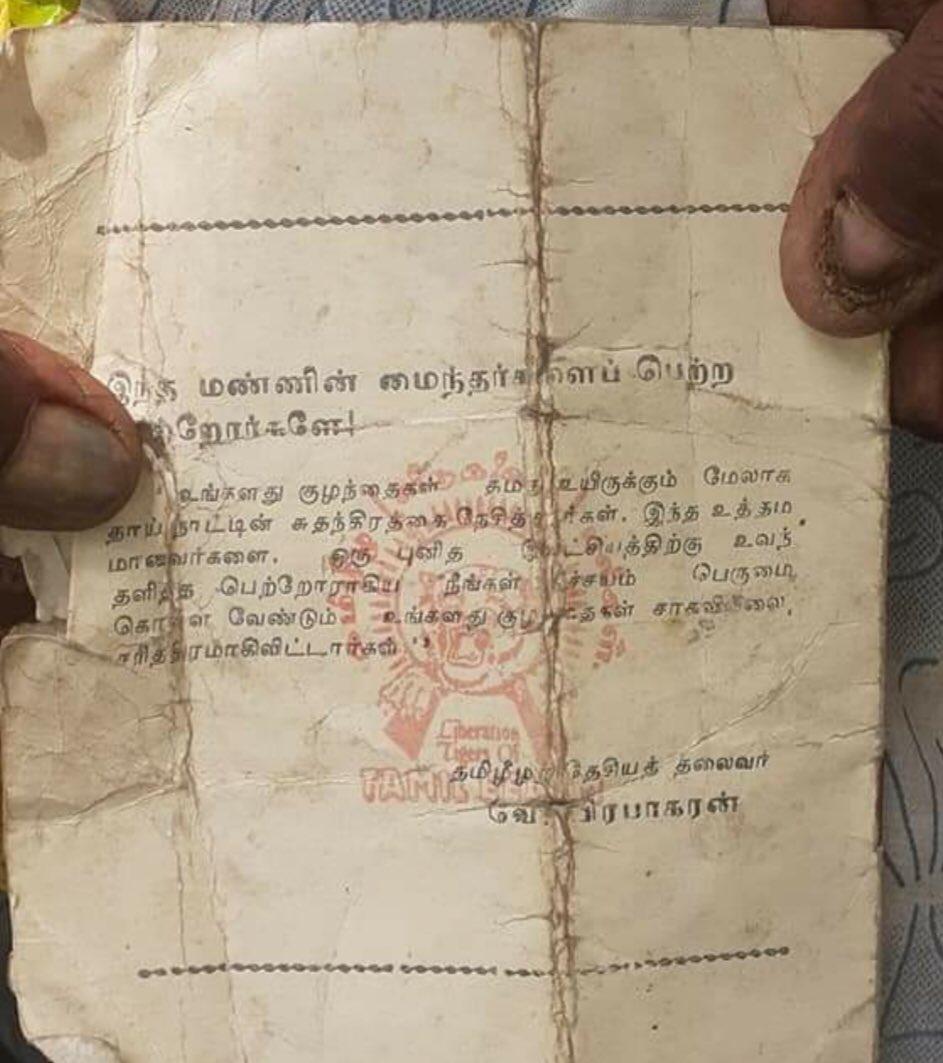 இந்த மண்ணின் மைந்தர்களைப் பெற்ற
பெற்றோர்களே!
" உங்களது குழந்தைகள் தமது உயிருக்கும் மேலாக
தாய் நாட்டின் சுதந்திரத்தை நேசித்தார்கள். இந்த உத்தம
மானவர்களை, ஒரு புனித இலட்சியத்திற்கு உவந்
தளித்த பெற்றோராகிய நீங்கள் நிச்சயம் பெருமை
கொள்ள வேண்டும் உங்களது குழந்தைகள் சாகவில்லை,
சரித்திரமாகிவிட்டார்கள் "
Liberation
Tigers Of
TAMIL EELAM
தமிழீழ தேசியத் தலைவர்
வே. பிரபாகரன்